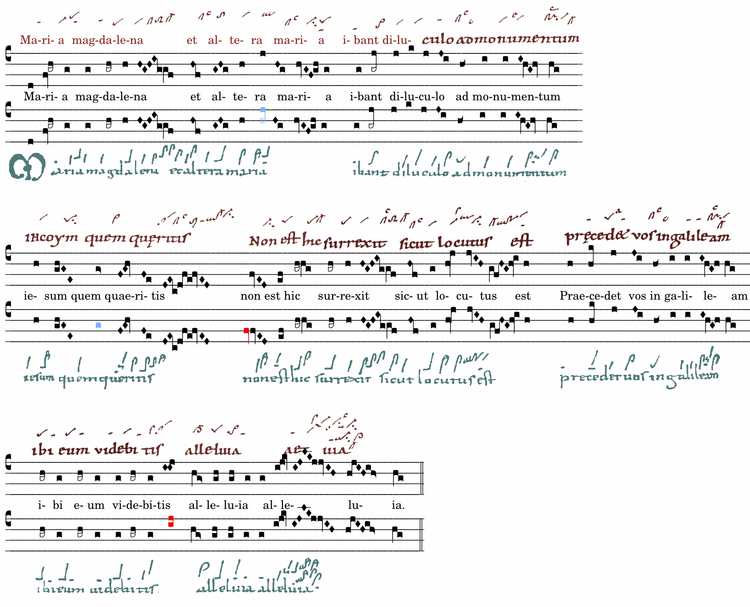 Ma-ri- a mag-da-le-na et al- te- ra ma-ri- a i- bant di-lu- culo ad monumentum
Ma-ri- a mag-da-le-na et al- te- ra ma-ri- a i-bant di-lu-cu-lo ad mo-nu-men-tum
Maria magdalena et altera maria ibant diluculo ad monumentum
quem queritis Non est hic surrexit sicut locutus est precedet vos in galileam
ie- sum quem quae-ri- tis non est hic sur-re-xit sic- ut lo- cu- tus est Prae-ce-det vos in ga-li- le- am
iesum quem queritis non est hic surrexit sicut locutus est precedet vos in galileam
ibi eum videbitis alleluia
i- bi e- um vi-de-bi-tis al- le- lu-ia al- le- lu- ia.
ibi eum videbitis alleluia alleluia